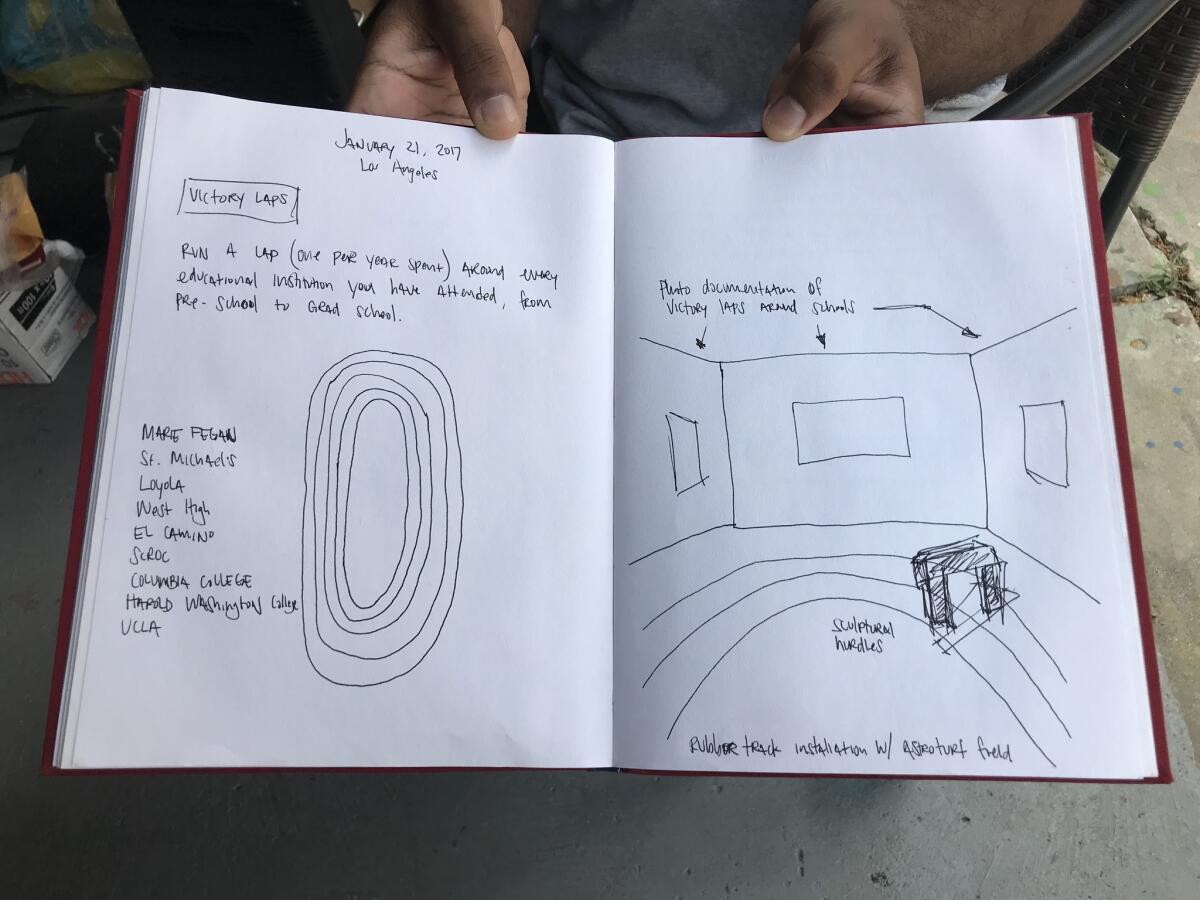 JANUARY 21, 2017
Los Angeles
VICTORY LAPS
RUN A LAP (ONE PER YEAR SPENT) AROUND EVERY
educational institution you have attended, from
PRE-SCHOOL to GRAD SCHOOL.
MARIE FEGAN
St. Michael's
LOYOLA
West High
EL CAMINO
SCROC
COLUMBIA COLLEGE
HAROLD WASHINGTON College
UCLA
Photo documentation of
VICTORY LAPS AROUND SCHOOLS
SCULPTURAL
hurdles
RUBBER TRACK INSTALLATION W/ ASTROTURF field